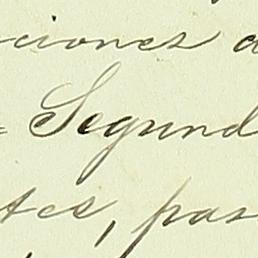 ciones a
Segund
tes, pas